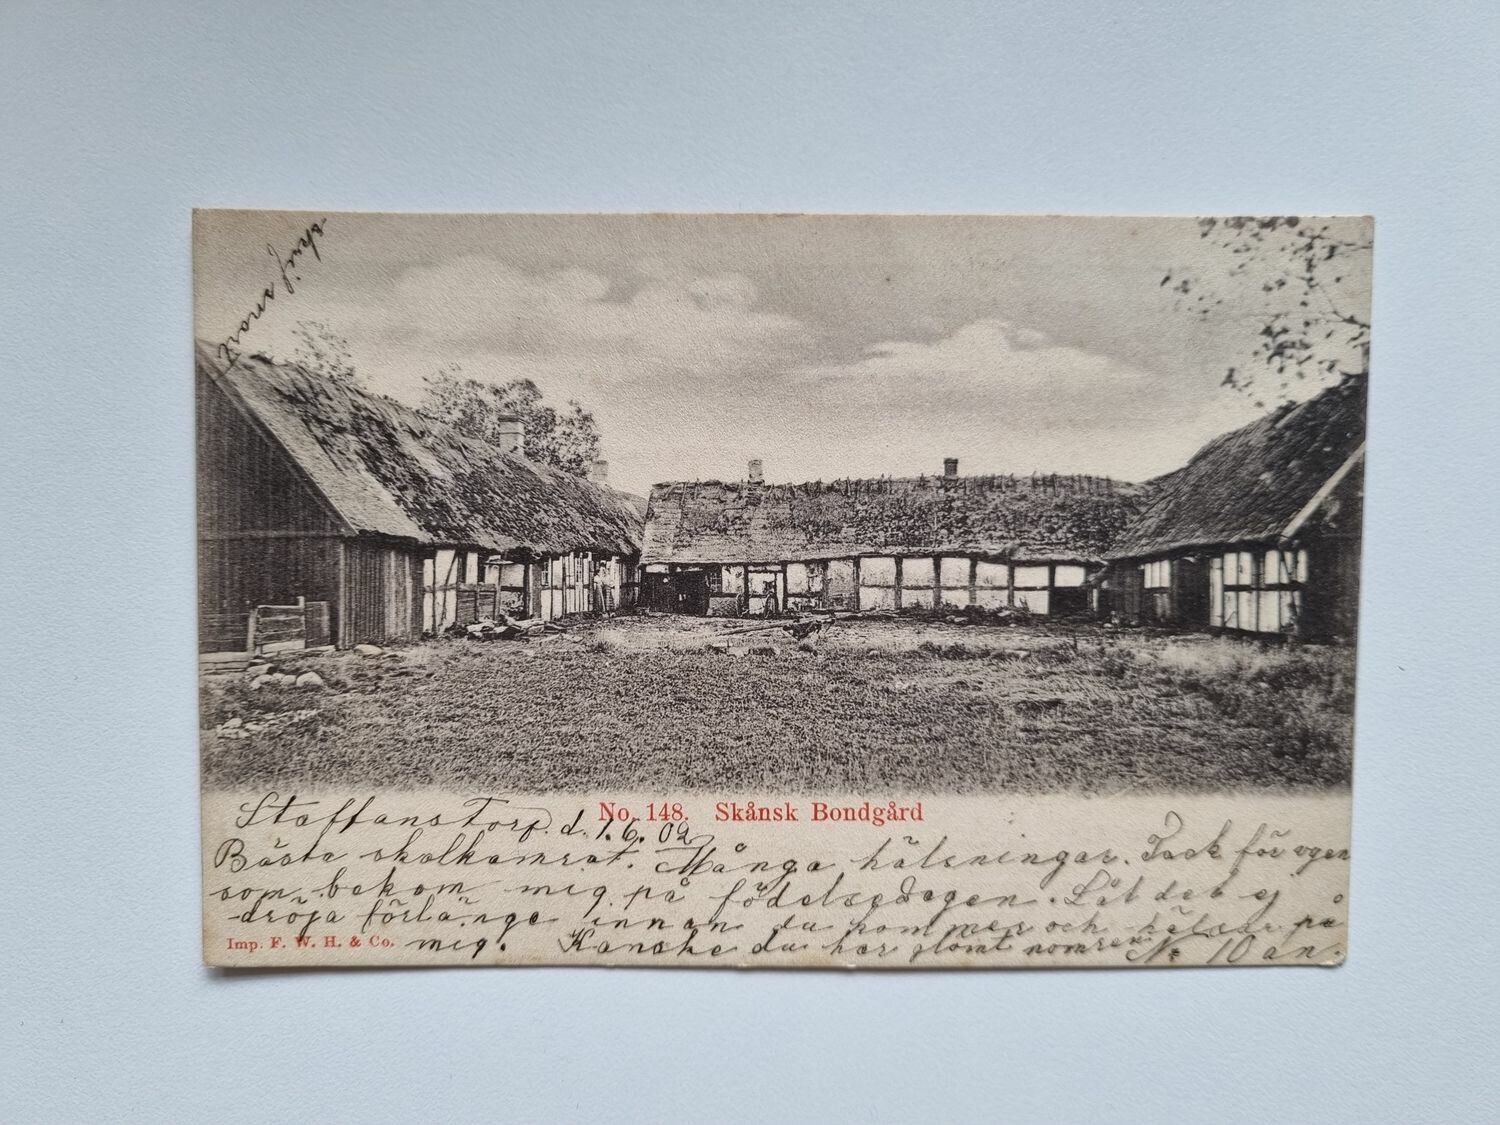 No. 148. Skånsk Bondgård
StaffansTorp. d. 1.6. 02
Bästa skolkamrat. Många hälsningar. Tack för
som bekom mig på födelsedagen. Låt det ej
dröja förlänge innan du kommer och hälsar på
mig. Kanske du har glömt nomren No 10 an.
Imp. F. W. H. & Co.